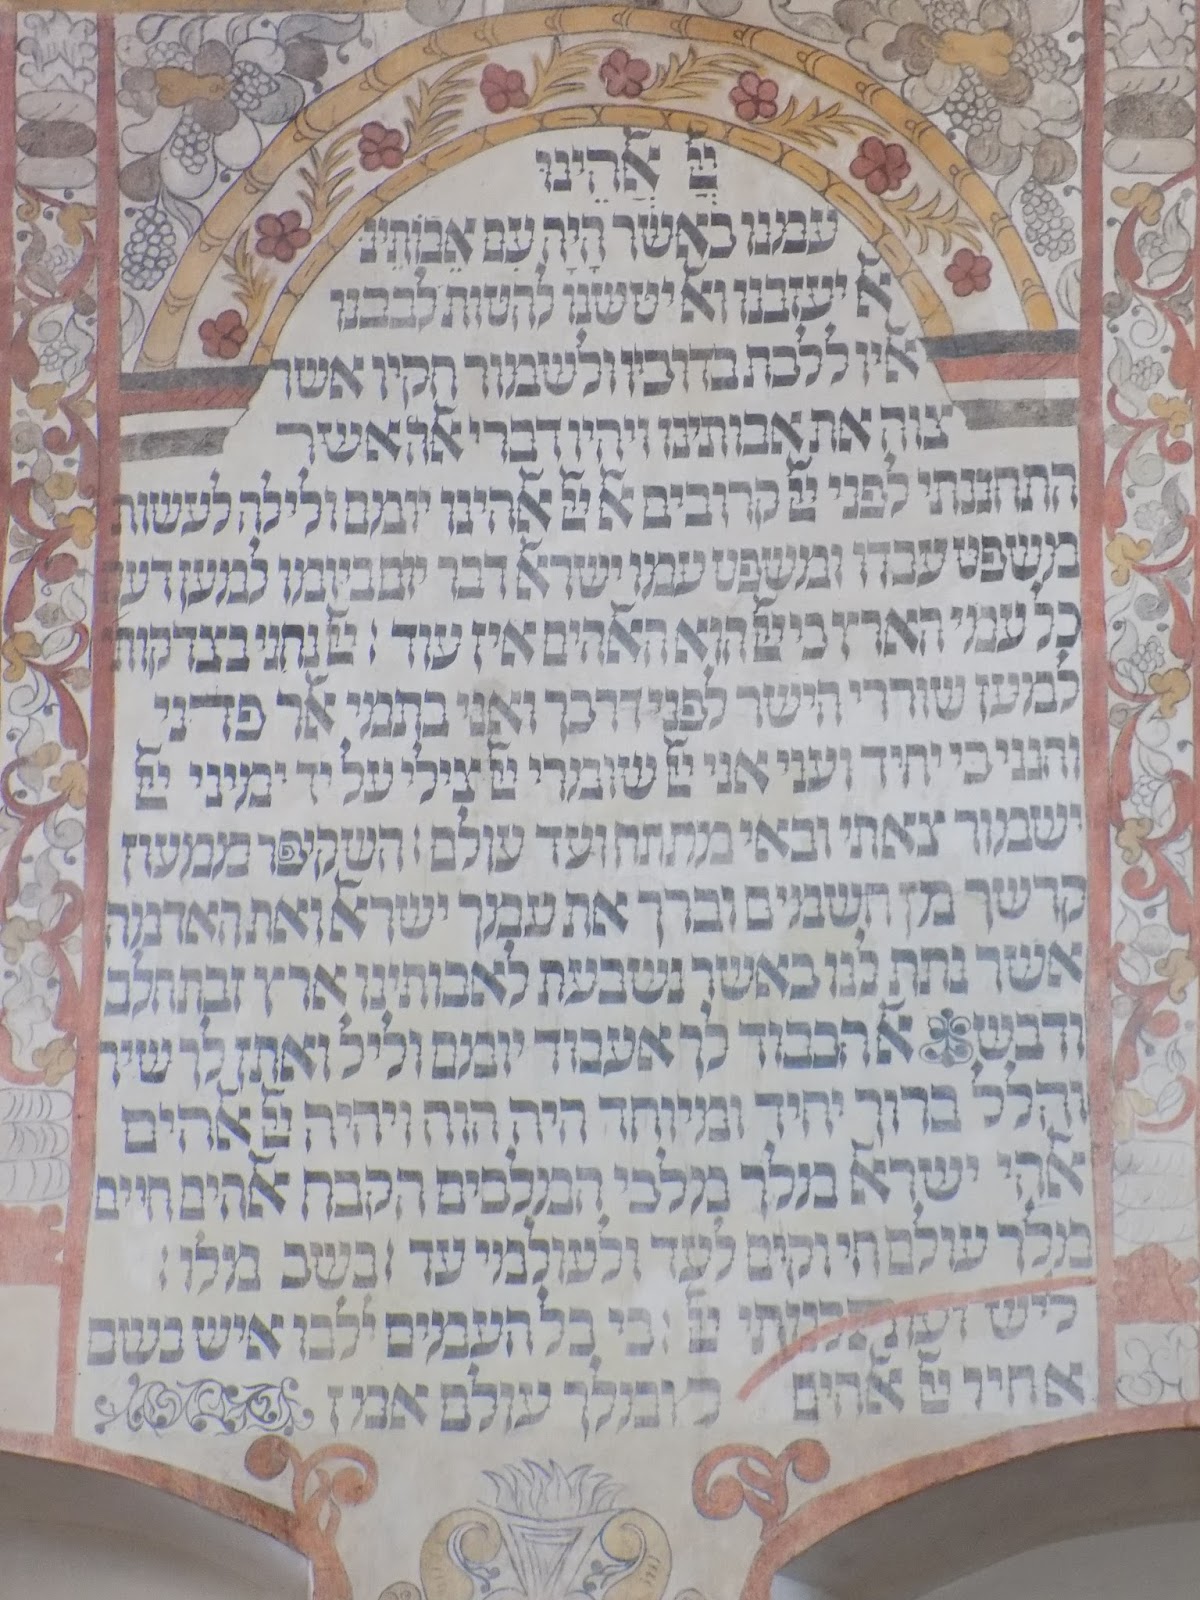 יי ﭏהינו
עמנו כאשר היה עם אבותינו
ﭏ יעזבנו וﭏ יטשנו להטות לבבנו
ﭏיו ללכת בדרכיו ולשמור חקיו אשר
צוה את אבותינו ויהיו דברי ﭏה אשר
התחננתי לפני יי קרובים ﭏ יי ﭏהינו יומם ולילה לעשות
משפט עבדו ומשפט עמו ישרﭏ דבר יום ביומו למען דעת
כל עמי הארץ כי יי הוא הﭏהים אין עוד : יי נחני בצדקות
למען שוררי הישר לפני דרכך ואני בתמי ﭏך פדיני
וחנני כי יחיד ועני אני יי שומרי יי צילי על יד ימיני יי
ישמור צאתי ובאי מתתה ועד עולם : השקיפה ממעון
קדשך מן השמים וברך את עמך ישרﭏ ואת האדמה
אשר נתת לנו כאשר נשבעת לאבותינו ארץ זבת חלב
ודבש ﭏ הכבוד לך אעבוד יומם וליל ואתן לך שיר
והלל ברוך יחיד ומיוחד היה הוה ויהיה יי ﭏהים
ﭏהי ישרﭏ מלך מלכי המלכים הקבה ﭏהים חיים
מלך עולם חי וקים לעד ולעולמי עד : בשכ מלו :
יי : כי כל העמים ילכו איש בשם
יי ﭏהים ומלך עולם אמן